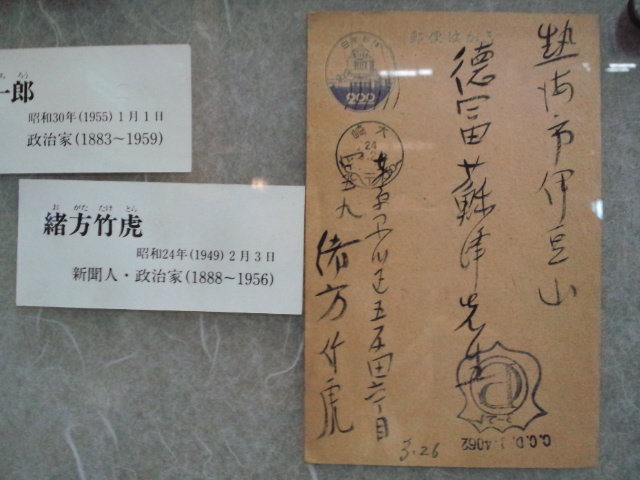 一郎
昭和30年(1955)1月1日
政治家(1883〜1959)
おがたたけとら
緒方竹虎
昭和24年(1949)2月3日
新聞人・政治家(1888〜1956)
郵便はがき
熱海市伊豆山
徳富蘇峰先生
東京品川区五反田六丁目
四五九
緒方竹虎
200
24
3.26
C.C.D. J-4062